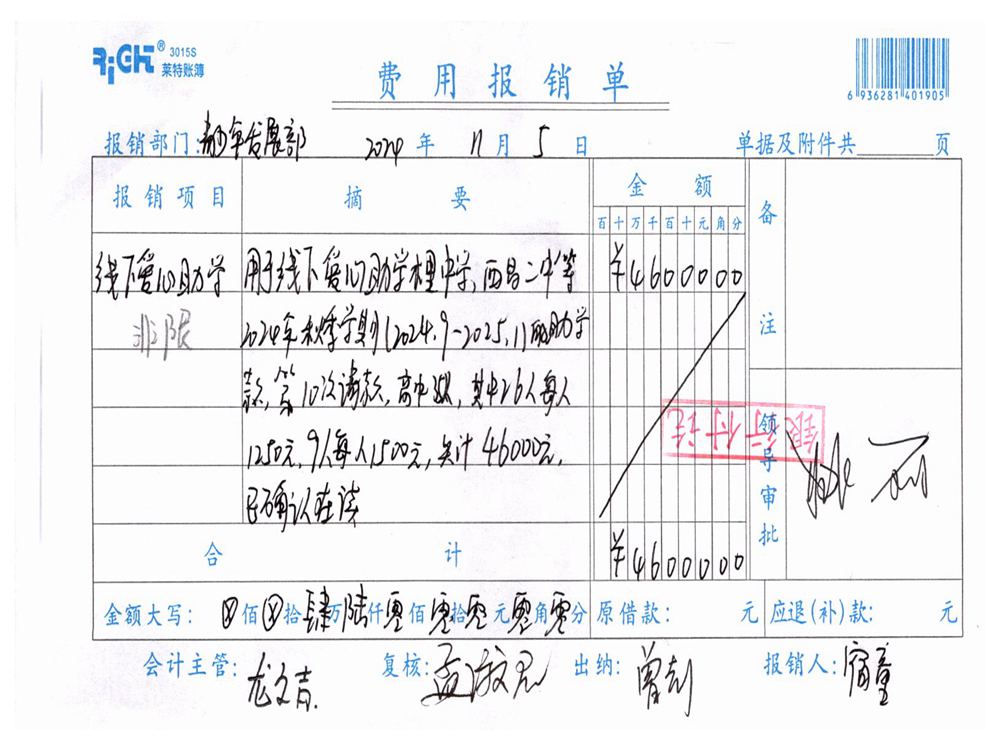 RiGHT® 3015S
莱特账簿
费用报销单
6 936281 401905
报销部门:青少年发展部 2024年11月5日 单据及附件共 页
报销项目 摘要 金额 备注
百十万千百十元角分
线下爱心助学 用于线下爱心助学 中学,西昌二中等 ¥4600000
非限 2024年秋季学期(2024.9-2025.1)的助学
款,第10次请款,高中 ,其中26人每人
1250元,9人每人1500元,共计46000元,
已确认在读
银行付讫
领导审批
合计 ¥4600000
金额大写: ⊗佰⊗拾肆万陆仟零佰零拾零元零角零分 原借款: 元 应退(补)款: 元
会计主管:龙文吉 复核:孟 君 出纳:曾 报销人:宿童